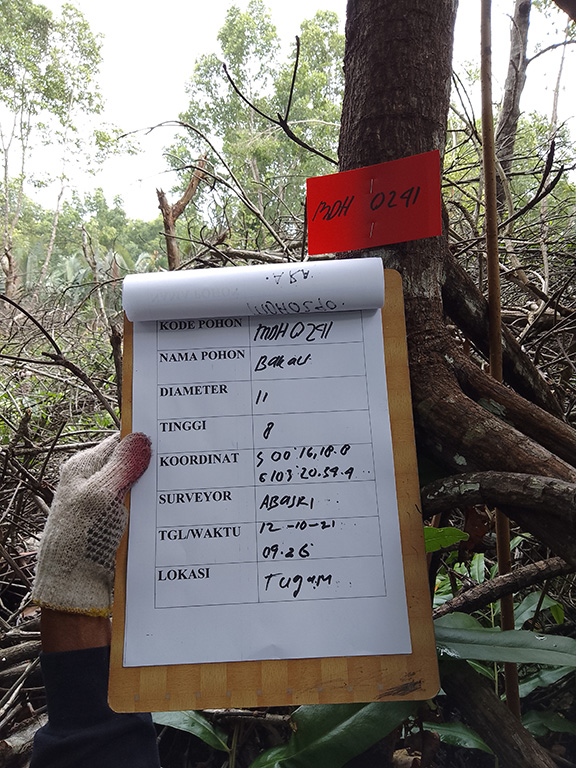 MDH 0291
KODE POHON MDH 0291
NAMA POHON Bakau
DIAMETER 11
TINGGI 8
KOORDINAT S 00°16,18.8
E 103°20.59.9
SURVEYOR ABASRI
TGL/WAKTU 12-10-21
09.26
LOKASI Tugam